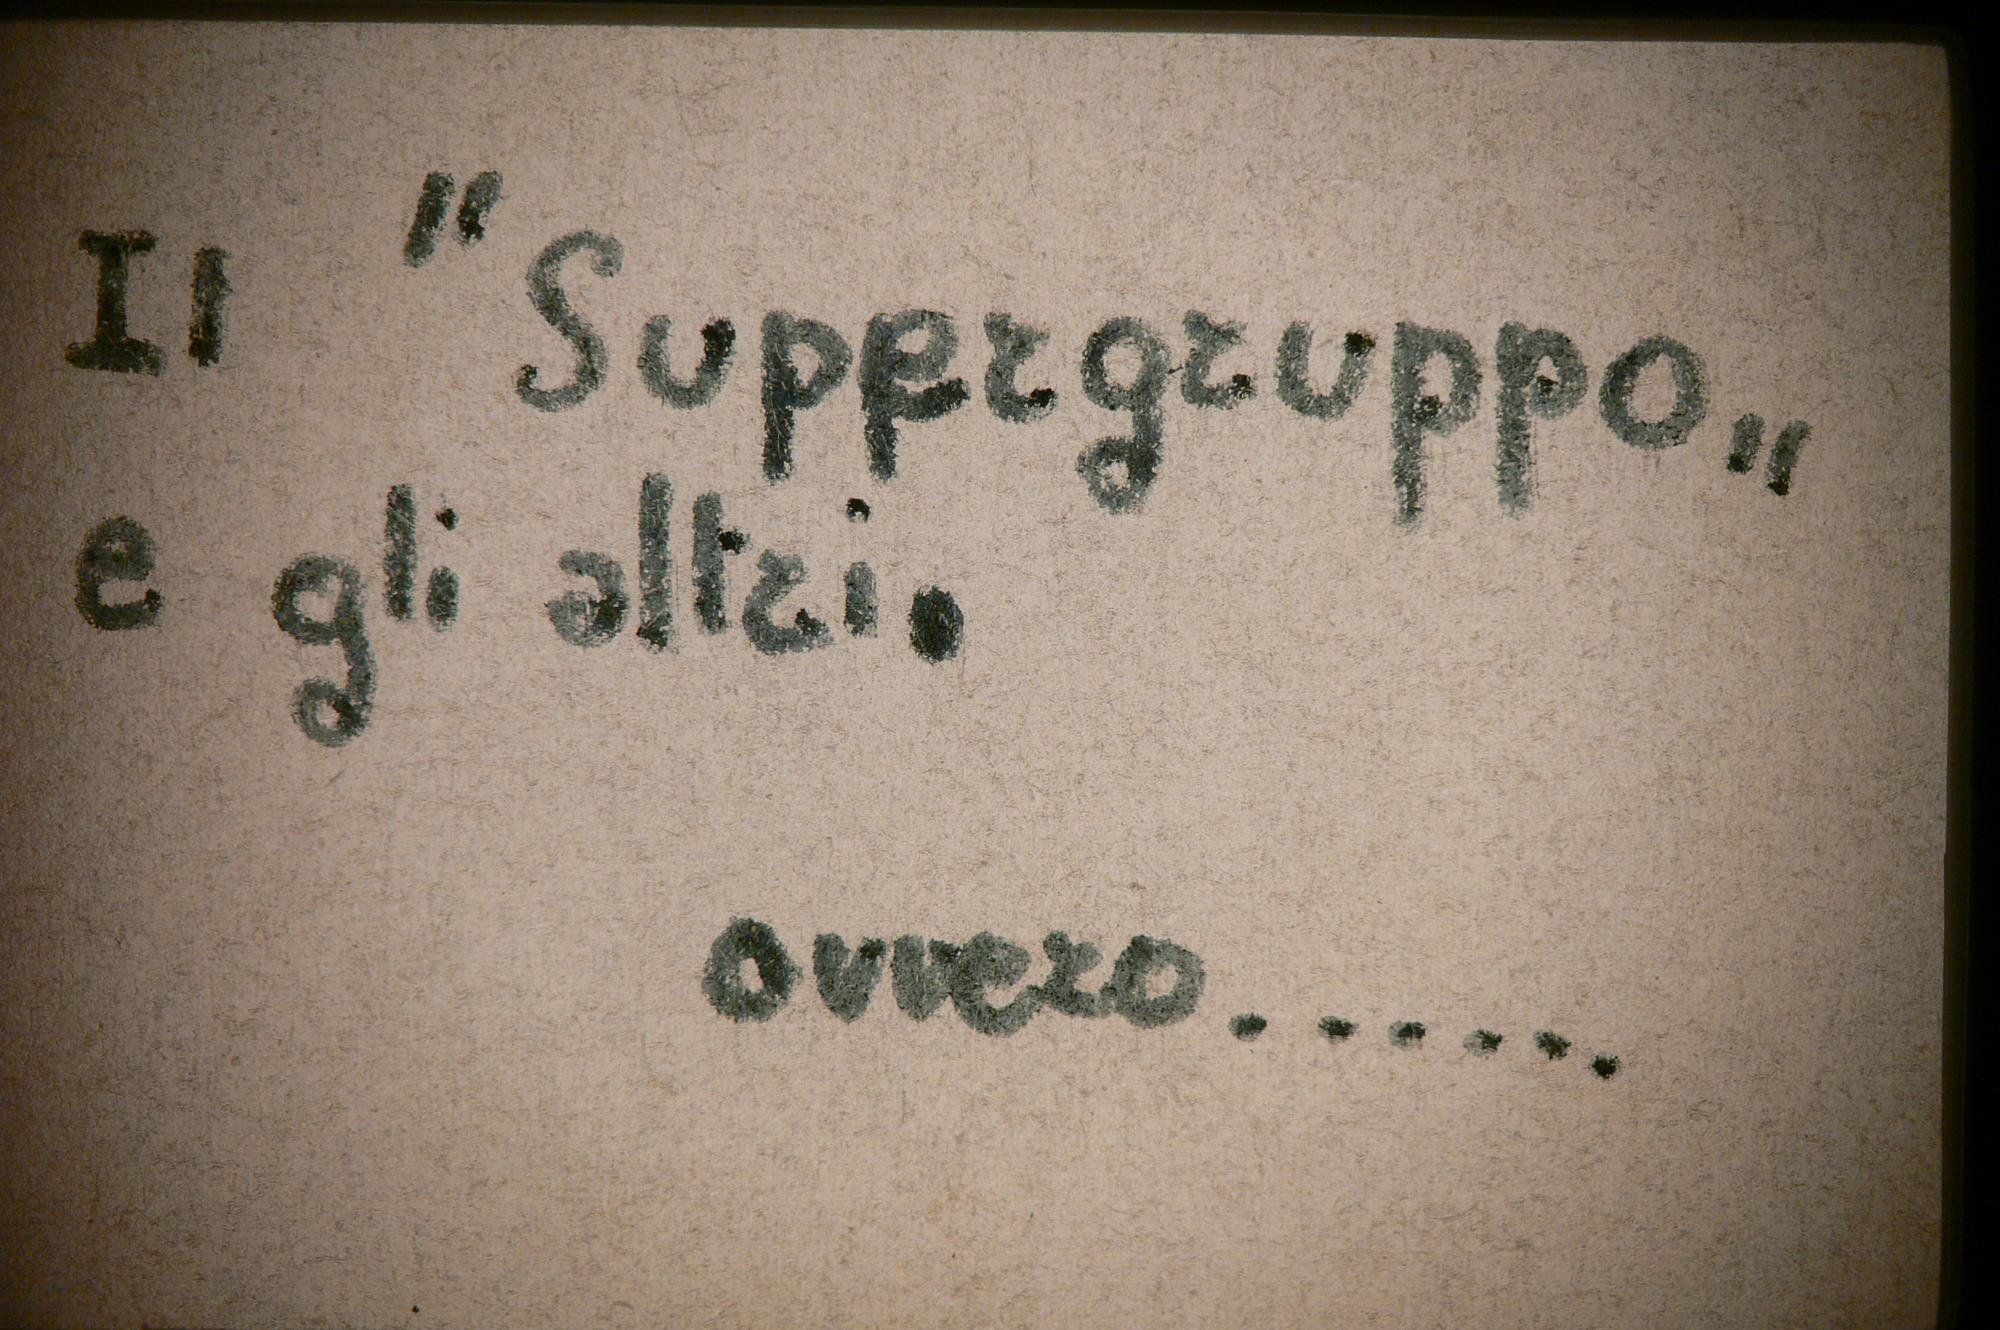 Il "Supergruppo„
e gli altri.
ovvero......